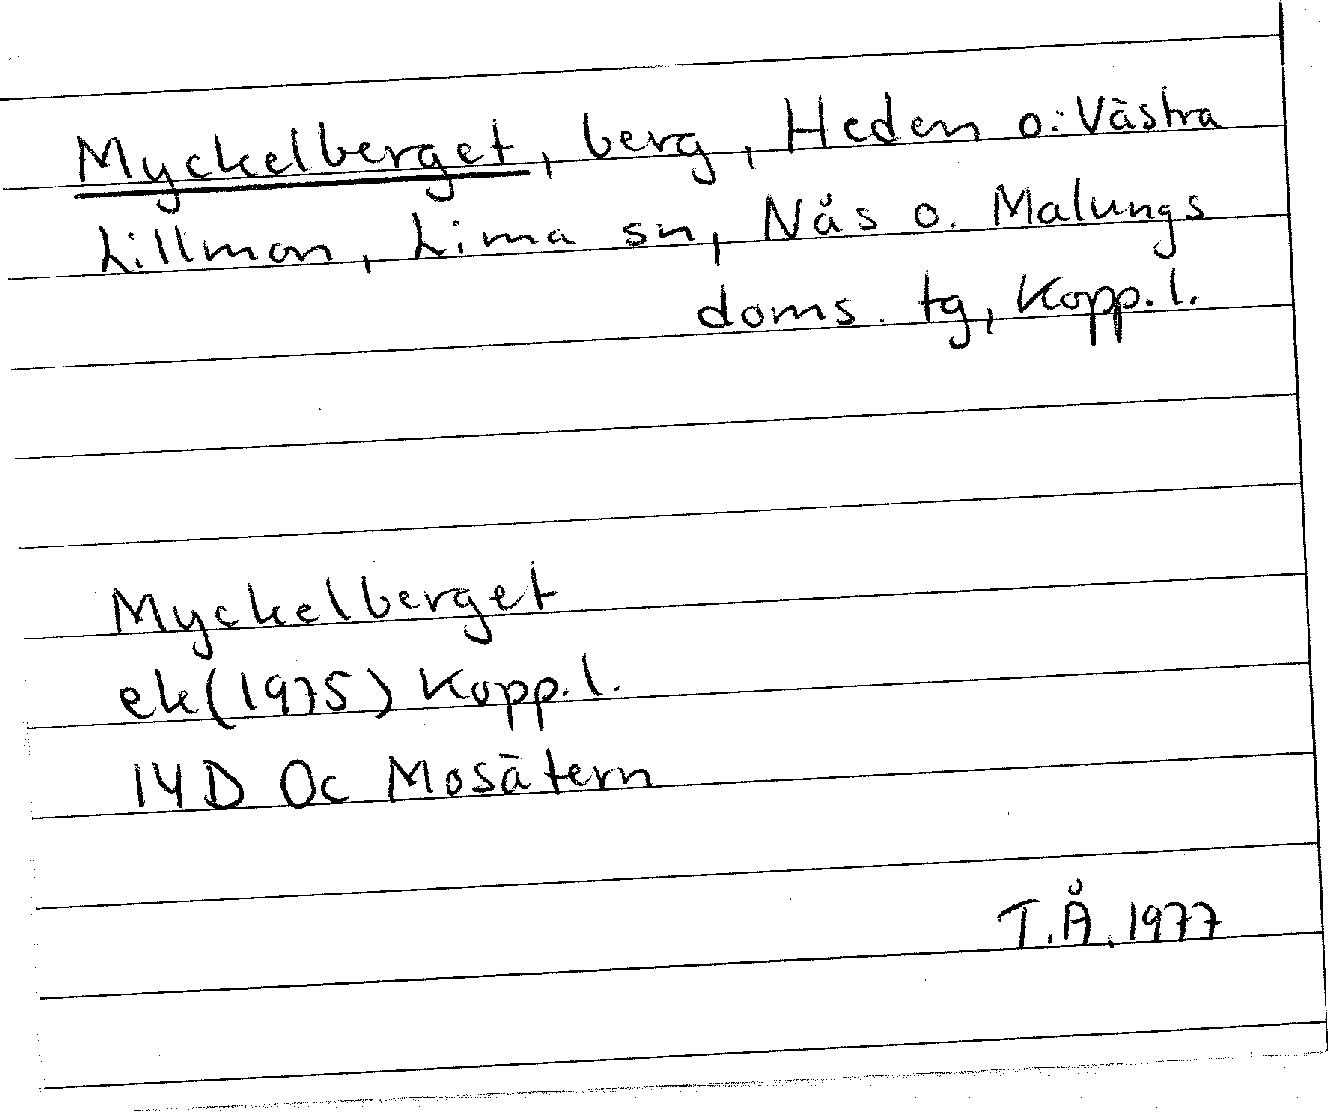 Myckelberget, berg, Heden o. Västra
Lillmon, Lima sn, Nås o. Malungs
doms. tg, Kopp. l.
Myckelberget
ek (1975) Kopp. l.
14D 0c Mosätern
T.Å. 1977